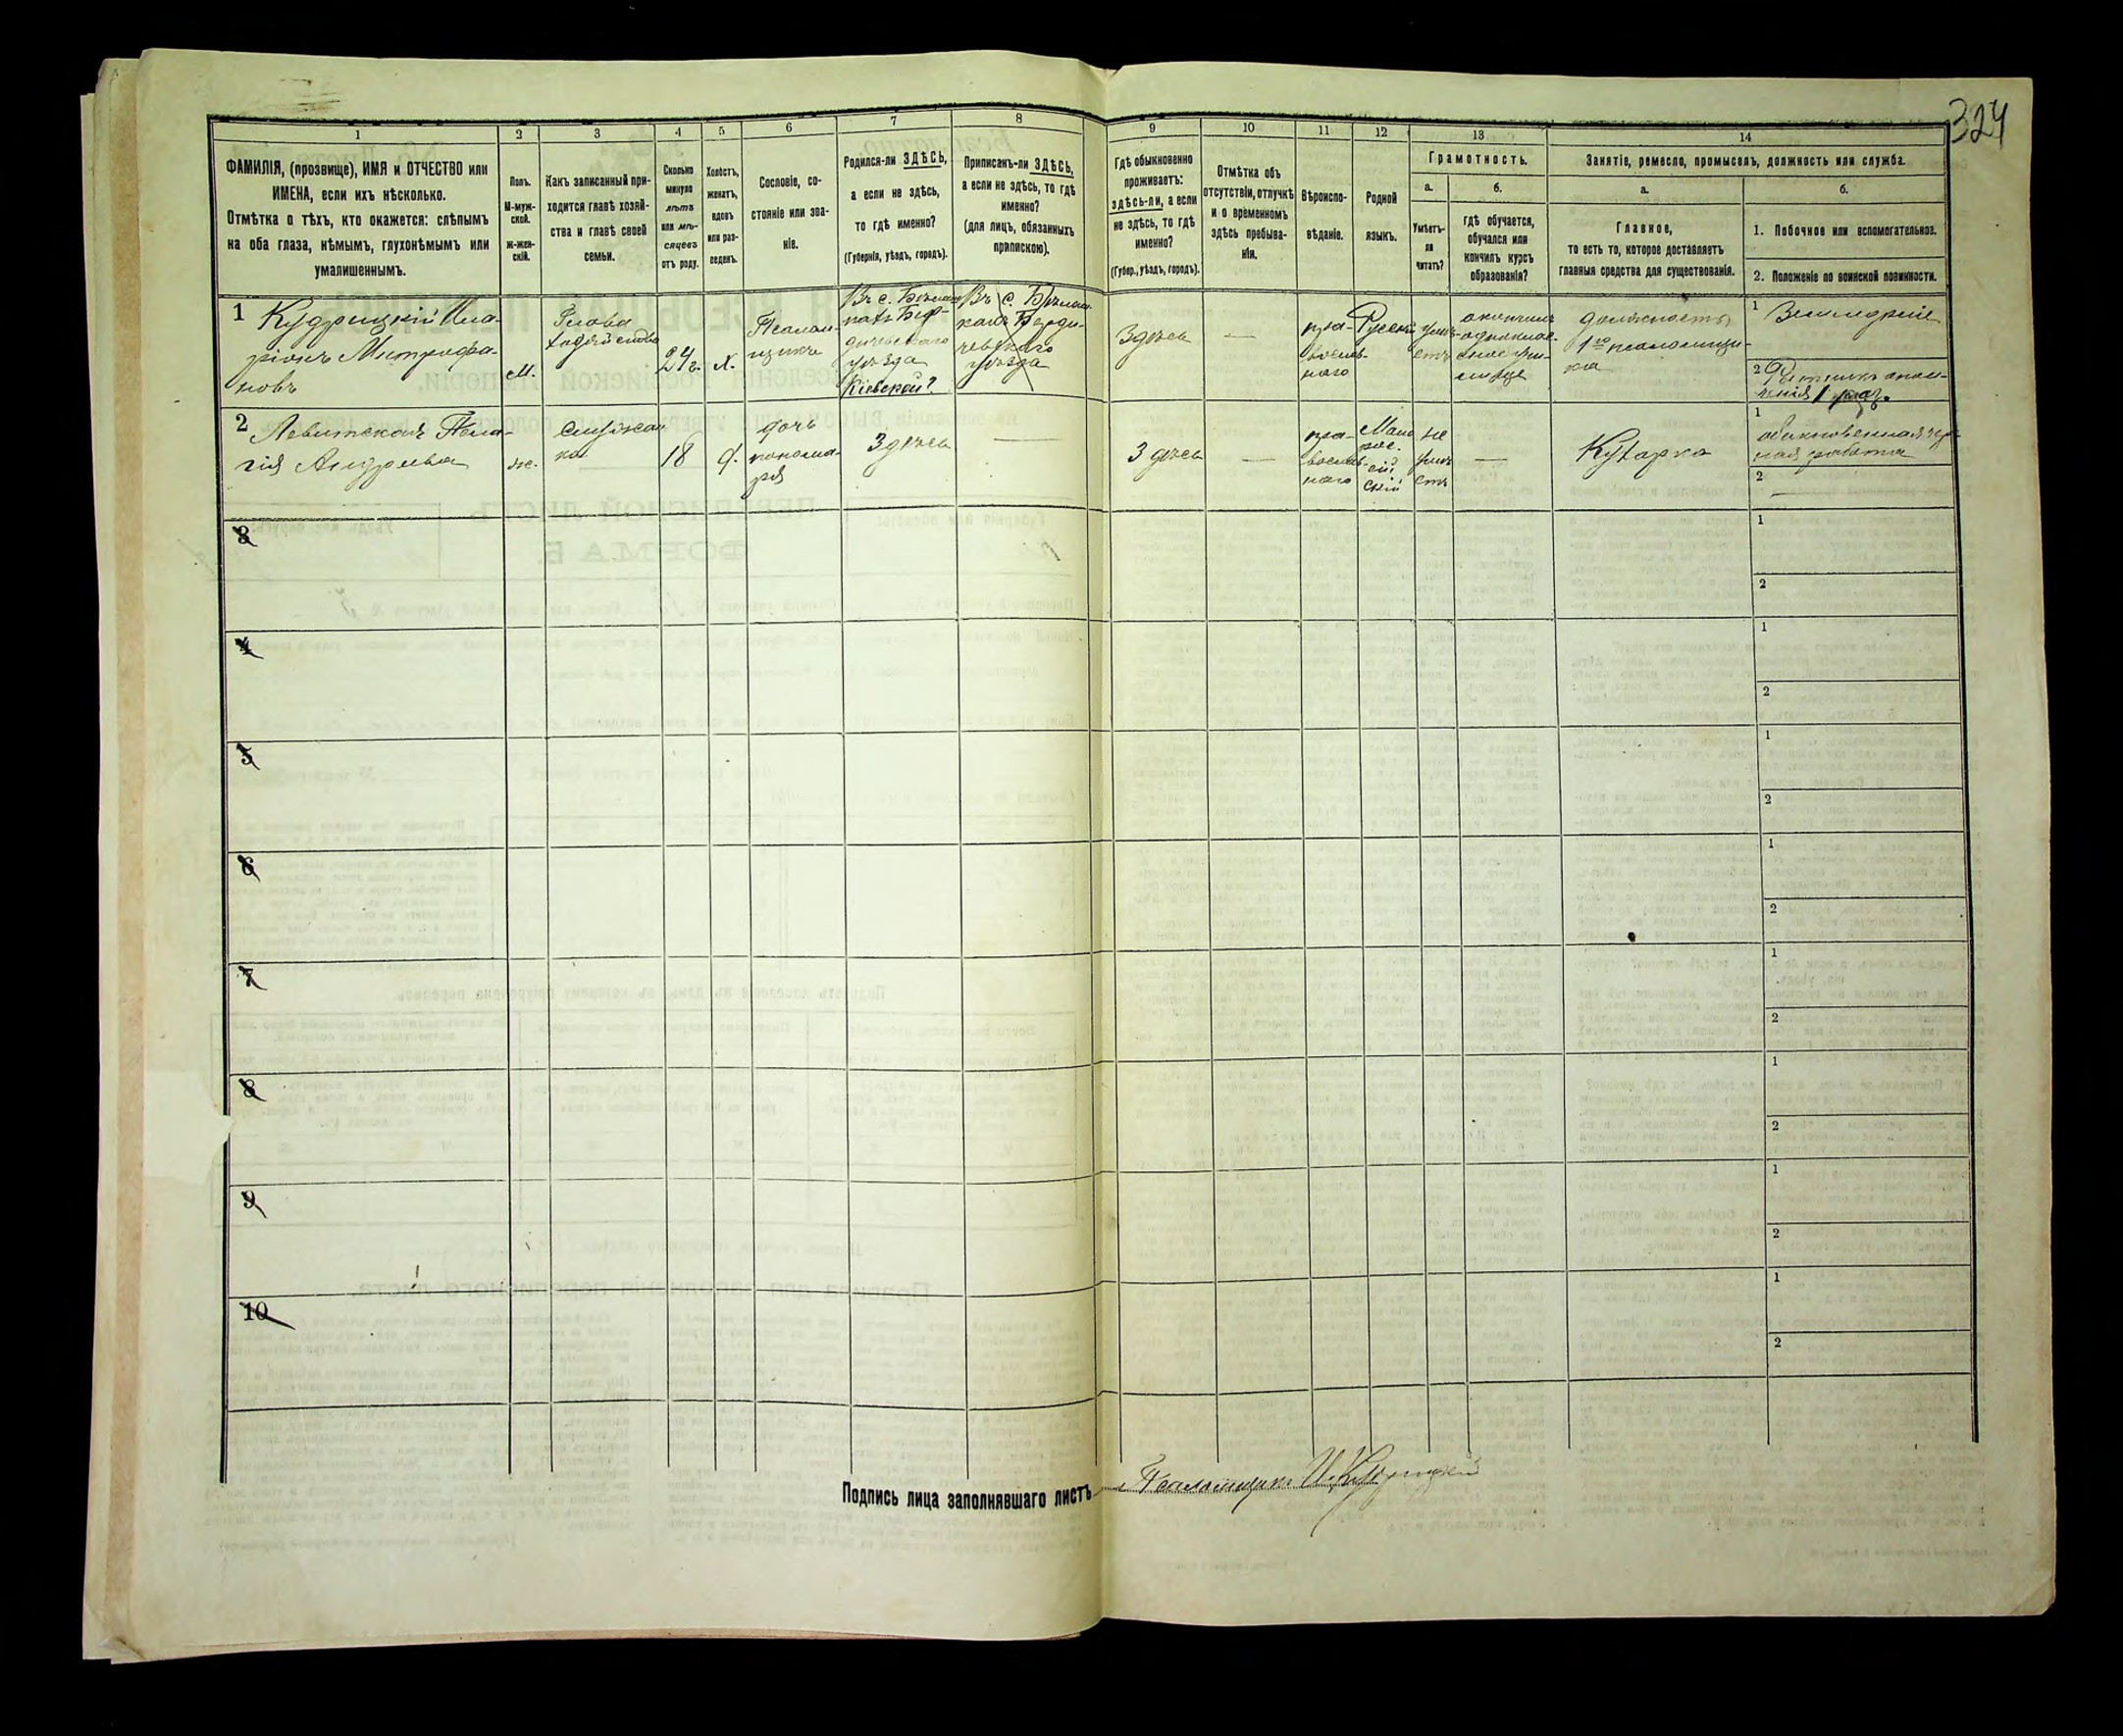 324
1
2
3
4
5
6
7
8
9
10
11
12
13
14
ФАМИЛІЯ, (прозвище), ИМЯ и ОТЧЕСТВО или
ИМЕНА, если ихъ нѣсколько.
Отмѣтка о тѣхъ, кто окажется: слѣпымъ
на оба глаза, нѣмымъ, глухонѣмымъ или
умалишеннымъ.
Полъ.
М-муж-
ской.
Ж-жен-
скій.
Какъ записанный при-
ходится главѣ хозяй-
ства и главѣ своей
семьи.
Сколько
минуло
лѣтъ
или мѣ-
сяцевъ
отъ роду.
Холостъ,
женатъ,
вдовъ
или раз-
веденъ.
Сословіе, со-
стояніе или зва-
ніе.
Родился-ли ЗДѢСЬ,
а если не здѣсь,
то гдѣ именно?
(Губернія, уѣздъ, городъ).
Приписанъ-ли ЗДѢСЬ,
а если не здѣсь, то гдѣ
именно?
(для лицъ, обязанныхъ
припискою).
Гдѣ обыкновенно
проживаетъ:
здѣсь-ли, а если
не здѣсь, то гдѣ
именно?
(Губер., уѣздъ, городъ).
Отмѣтка объ
отсутствіи, отлучкѣ
и о временномъ
здѣсь пребыва-
ніи.
Вѣроиспо-
вѣданіе.
Родной
языкъ.
Грамотность.
а.
Умѣетъ-
ли
читать?
б.
гдѣ обучается,
обучался или
кончилъ курсъ
образованія?
Занятіе, ремесло, промыселъ, должность или служба.
а.
Главное,
то есть то, которое доставляетъ
главныя средства для существованія.
б.
1. Побочное или вспомогательное.
2. Положеніе по воинской повинности.
1 Кудрицкій Ила-
ріонъ Митрофа-
новъ
м.
Глова
хадяйства
24г.
х.
Псалом-
щикъ
Въ с.
Бер-
дичевскаго
уѣзда
Кіевской?
Въ с.
Берди-
чевскаго
уѣзда
Здѣсь
—
пра-
восла-
наго
Русскій
умѣ-
етъ
окончилъ
одноклас-
сное учи-
лище
должность
1го псаломщи-
ка
1 Земледѣліе
2 Ратникъ опол-
ченія 1 раз.
2 Левитская Пела-
гія Андреева
ж.
служан-
ка
—
18
д.
дочь
понома-
ря
Здѣсь
—
Здѣсь
—
пра-
восла-
наго
Мало
рос.
сій
скій
не
умѣ
етъ
—
Кухарка
1
обыкновенная чер-
ная работа
2
—
3
1
2
4
1
2
5
1
2
6
1
2
7
1
2
8
1
2
9
1
2
10
1
2
Подпись лица заполнявшаго листъ
Псаломщикъ И. Кудрицкій